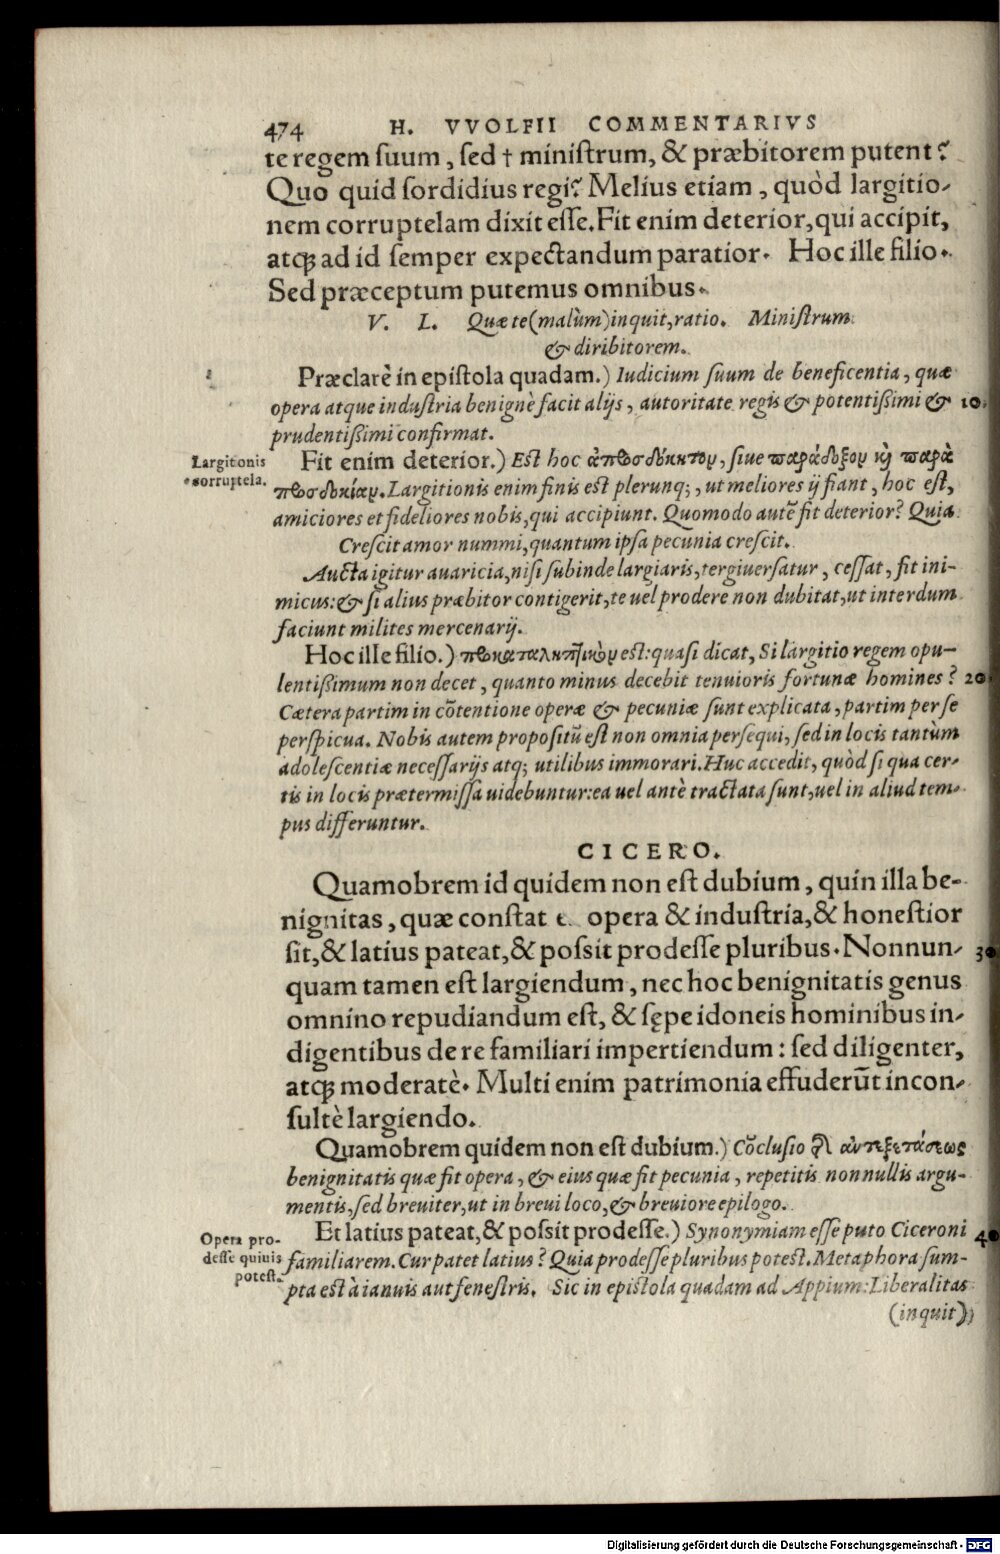 474 H. VVOLFII COMMENTARIVS
te regem suum, sed † ministrum, & præbitorem putent?
Quo quid sordidius regi? Melius etiam, quòd largitio-
nem corruptelam dixit esse. Fit enim deterior, qui accipit,
atq; ad id semper expectandum paratior. Hoc ille filio.
Sed præceptum putemus omnibus.
V. L. Quæ te (malùm) inquit, ratio. Ministrum
& diribitorem.
Præclarè in epistola quadam.) Iudicium suum de beneficentia, quæ
opera atque industria benignè facit alijs, autoritate regis & potentißimi & 10
prudentißimi confirmat.
Largitonis
corruptela.
Fit enim deterior.) Est hoc ἀπροσδόκητον, siue παράδοξον καὶ παρὰ
προσδοκίαν. Largitionis enim finis est plerunq;, ut meliores ij fiant, hoc est,
amiciores et fideliores nobis, qui accipiunt. Quomodo autẽ fit deterior? Quia
Crescit amor nummi, quantum ipsa pecunia crescit.
Aucta igitur auaricia, nisi subinde largiaris, tergiuersatur, cessat, fit ini-
micus: & si alius præbitor contigerit, te uel prodere non dubitat, ut interdum
faciunt milites mercenarij.
Hoc ille filio.) προκαταληπτικὸν est: quasi dicat, Si largitio regem opu-
lentißimum non decet, quanto minus decebit tenuioris fortunæ homines? 20
Cætera partim in cõtentione operæ & pecuniæ sunt explicata, partim per se
perspicua. Nobis autem propositũ est non omnia persequi, sed in locis tantùm
adolescentiæ necessarijs atq; utilibus immorari. Huc accedit, quòd si qua cer-
tis in locis prætermissa uidebuntur: ea uel antè tractata sunt, uel in aliud tem-
pus differuntur.
CICERO.
Quamobrem id quidem non est dubium, quin illa be-
nignitas, quæ constat e opera & industria, & honestior
sit, & latius pateat, & possit prodesse pluribus. Nonnun- 30
quam tamen est largiendum, nec hoc benignitatis genus
omnino repudiandum est, & sępe idoneis hominibus in-
digentibus de re familiari impertiendum: sed diligenter,
atq; moderatè. Multi enim patrimonia effuderũt incon-
sultè largiendo.
Quamobrem quidem non est dubium.) Cõclusio τῆς ἀντεξετάσεως
benignitatis quæ fit opera, & eius quæ fit pecunia, repetitis nonnullis argu-
mentis, sed breuiter, ut in breui loco, & breuiore epilogo.
Opera pro-
desse quiuis
potest.
Et latius pateat, & possit prodesse.) Synonymiam esse puto Ciceroni 40
familiarem. Cur patet latius? Quia prodesse pluribus potest. Metaphora sum-
pta est à ianuis aut fenestris. Sic in epistola quadam ad Appium: Liberalitas
(inquit)
Digitalisierung gefördert durch die Deutsche Forschungsgemeinschaft - DFG